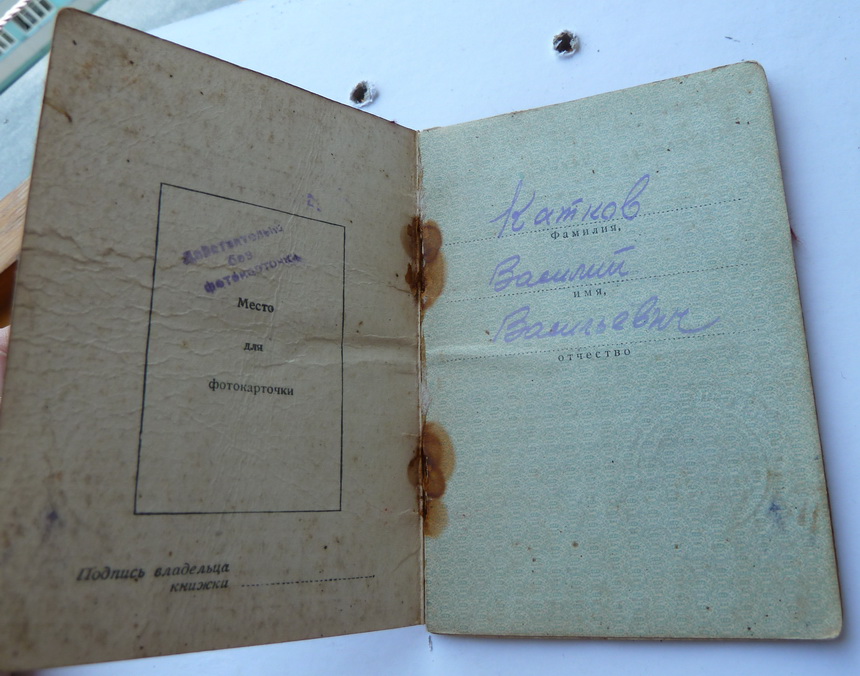 Действительно
без
фотокарточки
Место
для
фотокарточки
Подпись владельца
книжки
Катков
Фамилия,
Василий
имя,
Васильевич
отчество